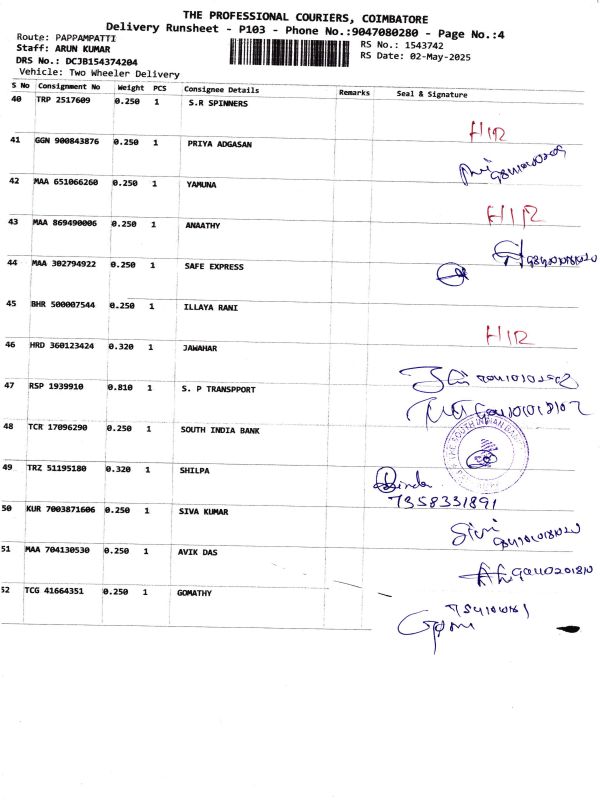 THE PROFESSIONAL COURIERS, COIMBATORE
Delivery Runsheet - P103 - Phone No.:9047080280 - Page No.:4
Route: PAPPAMPATTI
RS No.: 1543742
Staff: ARUN KUMAR
RS Date: 02-May-2025
DRS No.: DCJB154374204
Vehicle: Two Wheeler Delivery
S No Consignment No Weight PCS Consignee Details Remarks Seal & Signature
40 TRP 2517609 0.250 1 S.R SPINNERS
41 GGN 900843876 0.250 1 PRIYA ADGASAN
42 MAA 651066260 0.250 1 YAMUNA
43 MAA 869490006 0.250 1 ANAATHY
44 MAA 302794922 0.250 1 SAFE EXPRESS
45 BHR 500007544 0.250 1 ILLAYA RANI
46 HRD 360123424 0.320 1 JAWAHAR
47 RSP 1939910 0.810 1 S. P TRANSPPORT
48 TCR 17096290 0.250 1 SOUTH INDIA BANK
THE SOUTH INDIAN BANK
49 TRZ 51195180 0.320 1 SHILPA
7358331891
50 KUR 7003871606 0.250 1 SIVA KUMAR
51 MAA 704130530 0.250 1 AVIK DAS
52 TCG 41664351 0.250 1 GOMATHY